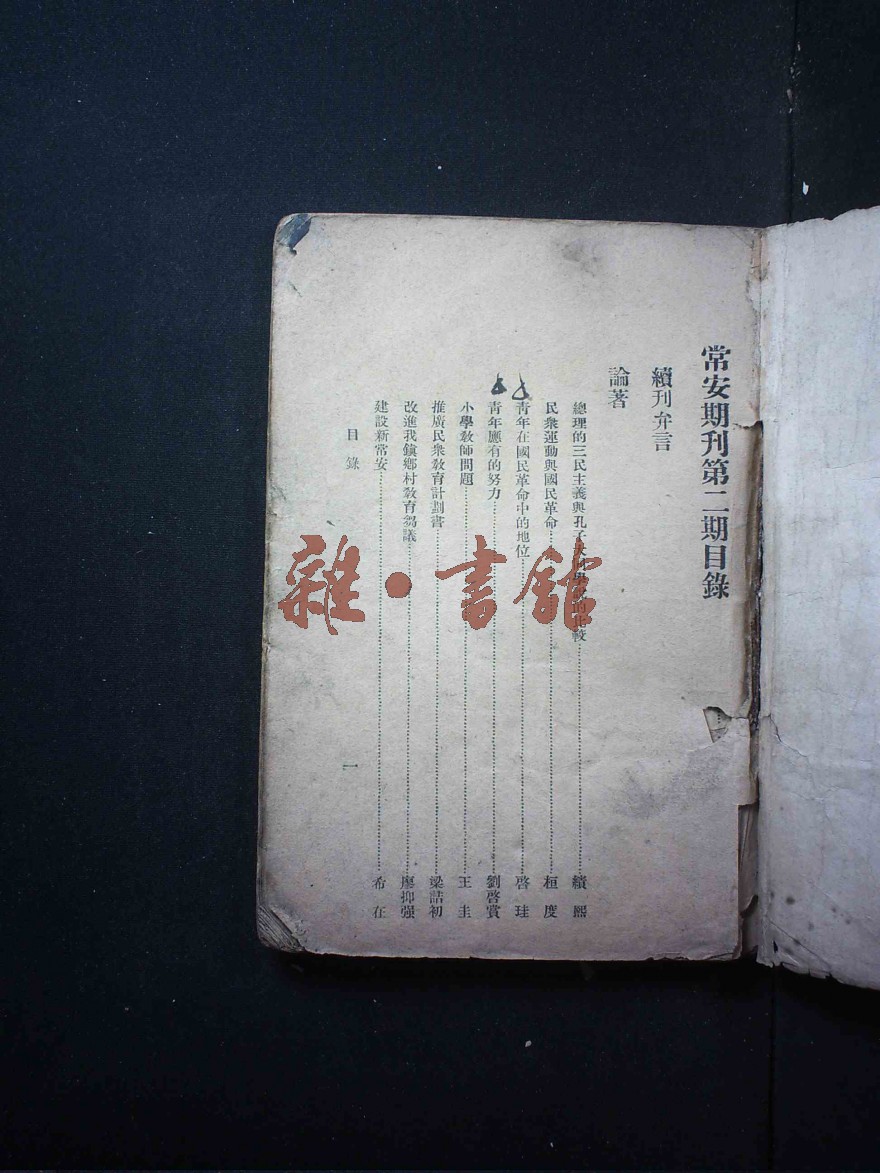 常安期刊第二期目錄
續刊弁言
論著
總理的三民主義與孔子大同學說的比較 續熙
民衆運動與國民革命 桓度
靑年在國民革命中的地位 啓珪
靑年應有的努力 劉啓賞
小學敎師問題 王圭
推廣民衆敎育計劃書 梁喆初
改進我鎭鄕村敎育芻議 廖抑强
建設新常安 希在
目錄 一
雜·書館